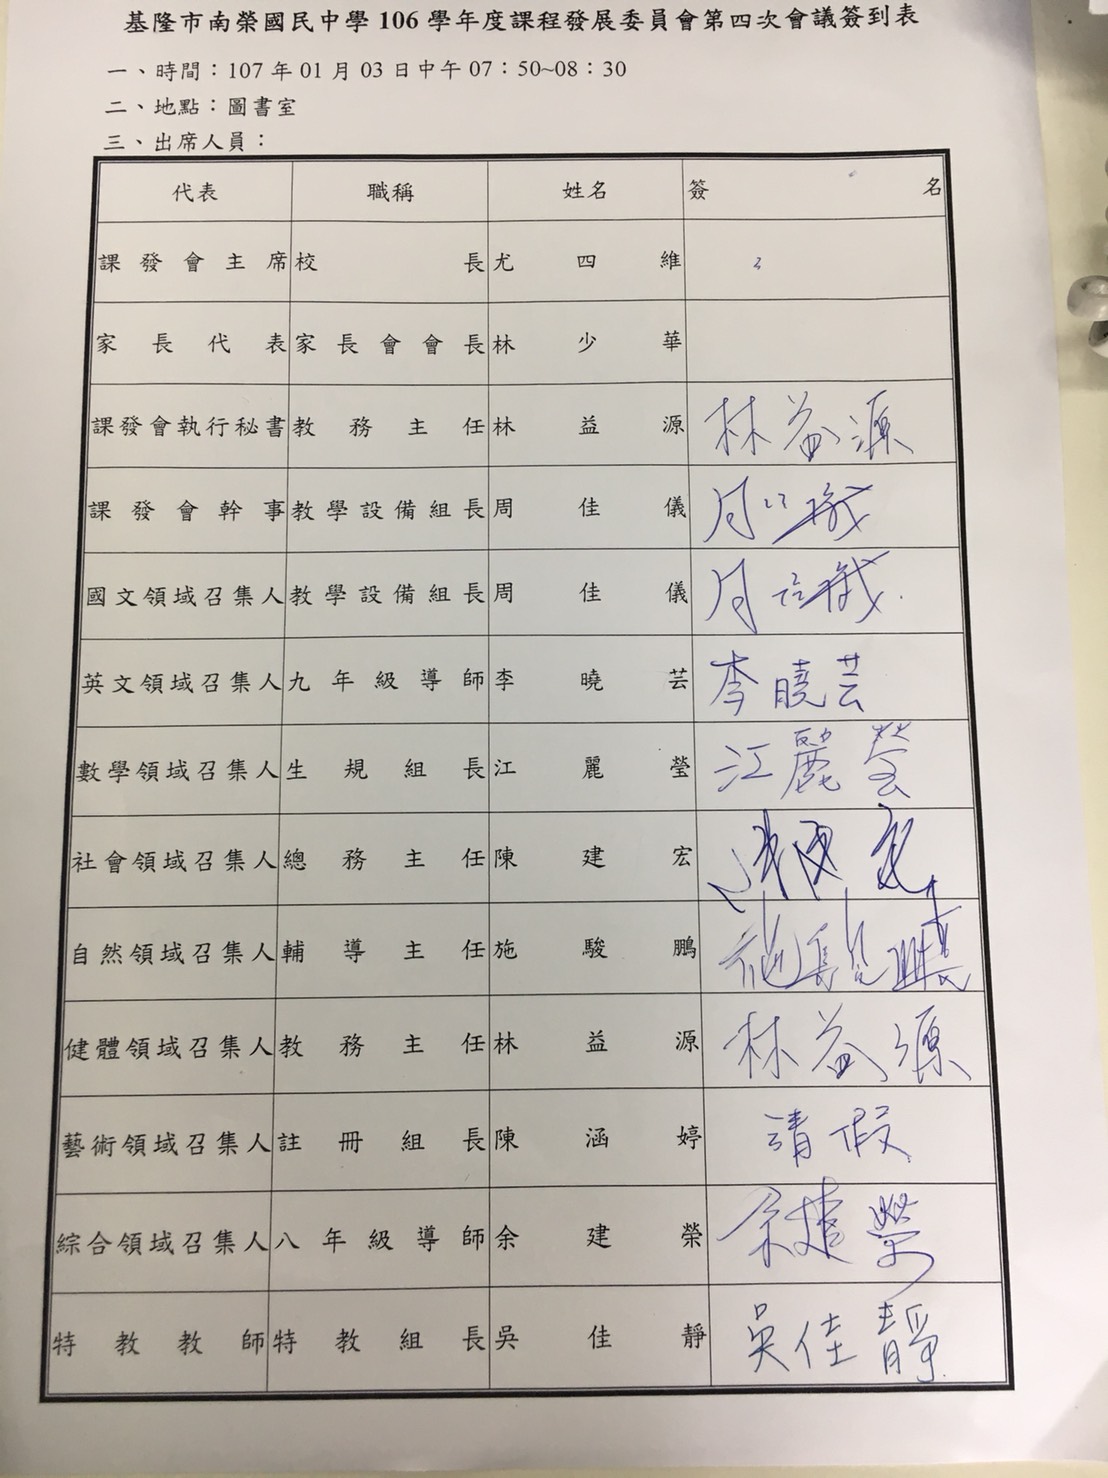 基隆市南榮國民中學 106 學年度課程發展委員會第四次會議簽到表
一、時間：107 年 01 月 03 日中午 07：50~08：30
二、地點：圖書室
三、出席人員：
代表 職稱 姓名 簽名
課發會主席 校長 尤四維
家長代表 家長會會長 林少華
課發會執行秘書 教務主任 林益源 林益源
課發會幹事 教學設備組長 周佳儀 周佳儀
國文領域召集人 教學設備組長 周佳儀 周佳儀
英文領域召集人 九年級導師 李曉芸 李曉芸
數學領域召集人 生規組長 江麗瑩 江麗瑩
社會領域召集人 總務主任 陳建宏 陳建宏
自然領域召集人 輔導主任 施駿鵬 施駿鵬
健體領域召集人 教務主任 林益源 林益源
藝術領域召集人 註冊組長 陳涵婷 請假
綜合領域召集人 八年級導師 余建榮 余建榮
特教教師 特教組長 吳佳靜 吳佳靜